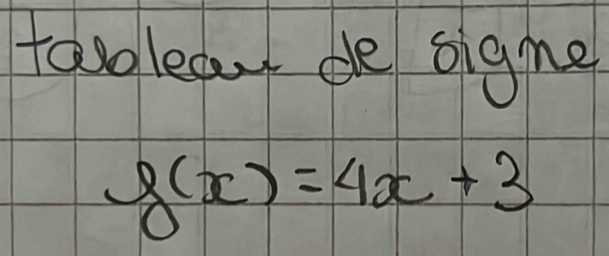 tableau de signe
f(x) = 4x + 3